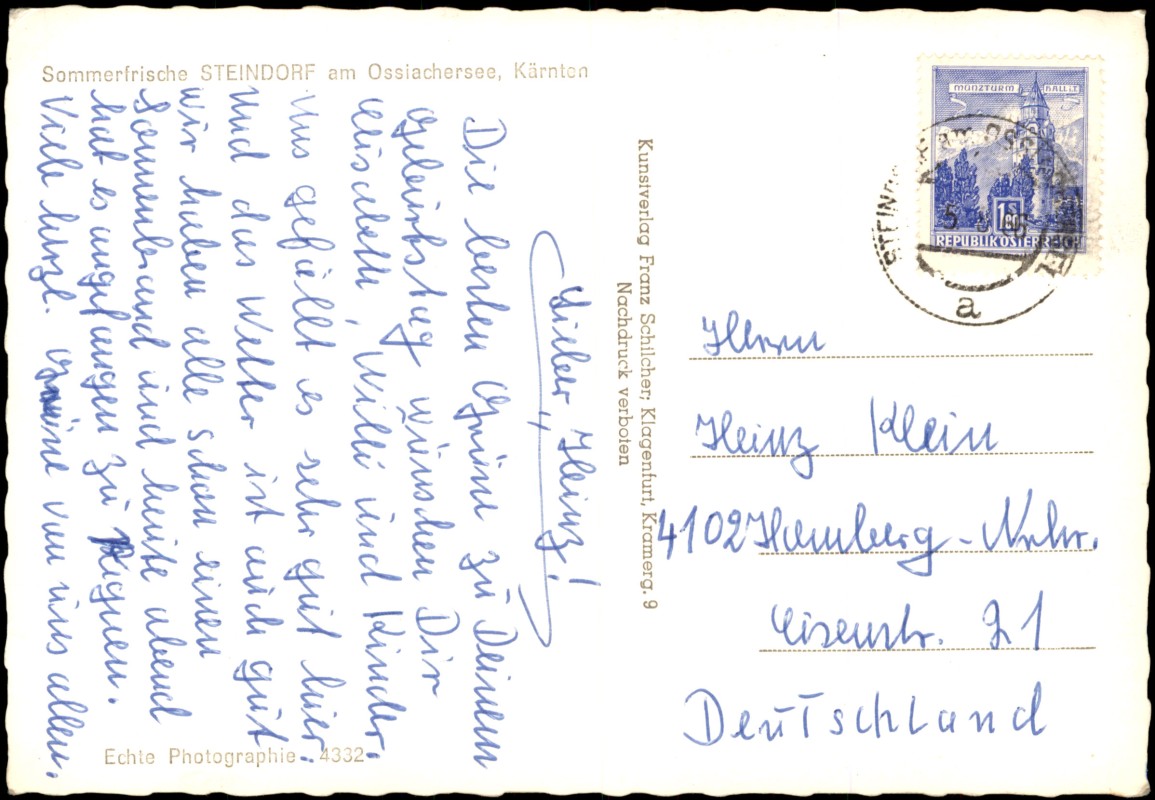 Sommerfrische STEINDORF am Ossiachersee, Kärnten
Lieber Heinz!
Die besten Grüsse zu Deinem
Geburtstag wünschen Dir
Willi und Kinder.
Uns gefällt es sehr gut hier.
Und das Wetter ist auch gut
wir haben alle schon einen
Sonnenbrand und heute abend
hat es angefangen zu Regnen.
Viele herzl. Grüsse von uns allen.
Echte Photographie 4332
Kunstverlag Franz Schilcher; Klagenfurt, Kramerg. 9
Nachdruck verboten
MÜNZTURM HALL i.T.
1.50 S
REPUBLIK ÖSTERREICH
a
Herrn
Heinz Klein
4102 Homberg-Ndrh.
Eisenstr. 21
Deutschland